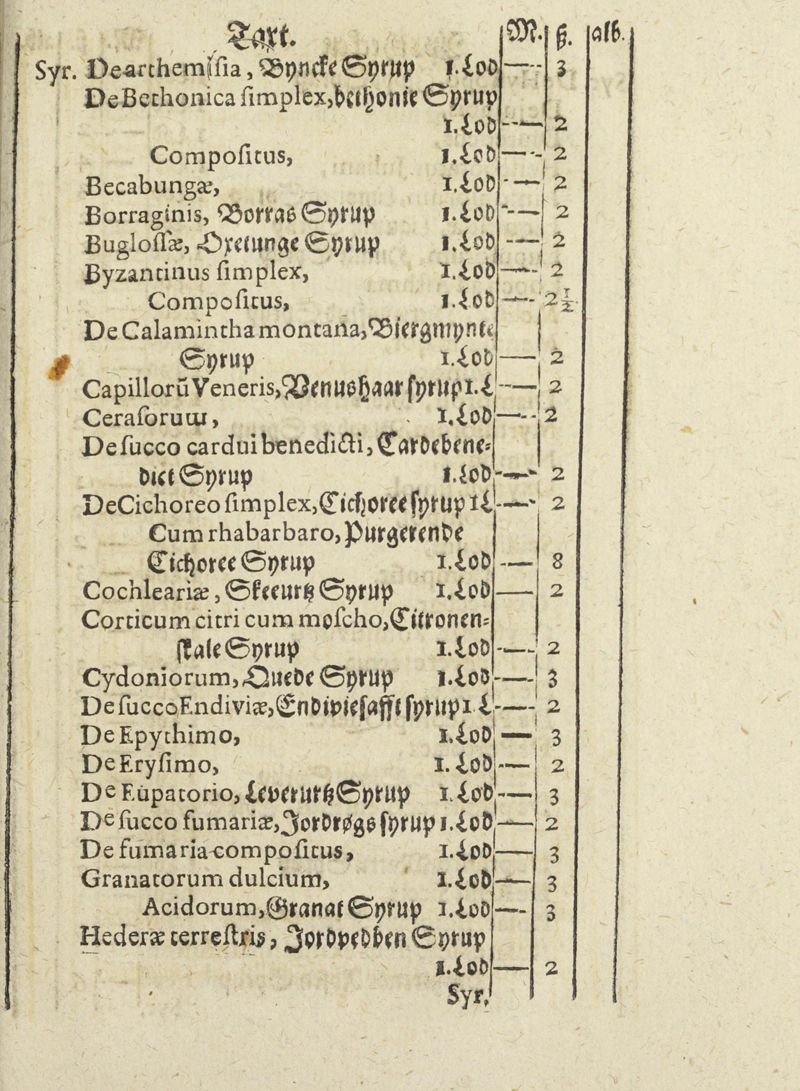 Taxt. M. ß. alb.
Syr. De arthemisia, Byncke Syrup 1. Lod — 3
De Bethonica simplex, bethonie Syrup
1. Lod — 2
Compositus, 1. Lod — 2
Becabungæ, 1. Lod — 2
Borraginis, Borras Syrup 1. Lod — 2
Buglossæ, Oxetunge Syrup 1. Lod — 2
Byzantinus simplex, 1. Lod — 2
Compositus, 1. Lod — 2½
De Calamintha montana, Biergmynte
Syrup 1. Lod — 2
Capillorũ Veneris, Venushaar syrup 1. L — 2
Ceraforum, 1. Lod — 2
De succo cardui benedicti, Cardebene-
dict Syrup 1. Lod — 2
De Cichoreo simplex, Cichoree syrup 1 L — 2
Cum rhabarbaro, Purgerende
Cichoree Syrup 1. Lod — 8
Cochleariæ, Skeeurtz Syrup 1. Lod — 2
Corticum citri cum moscho, Citronen-
skale Syrup 1. Lod — 2
Cydoniorum, Quede Syrup 1. Lod — 3
De succo Endiviæ, Endiviesafft syrup 1 L — 2
De Epythimo, 1. Lod — 3
De Erysimo, 1. Lod — 2
De Eupatorio, Leverurtz Syrup 1. Lod — 3
De succo fumariæ, Jordrøgs syrup 1. Lod — 2
De fumaria compositus, 1. Lod — 3
Granatorum dulcium, 1. Lod — 3
Acidorum, Granat Syrup 1. Lod — 3
Hederæ terrestris, Jordvedben Syrup
1. Lod — 2
Syr.